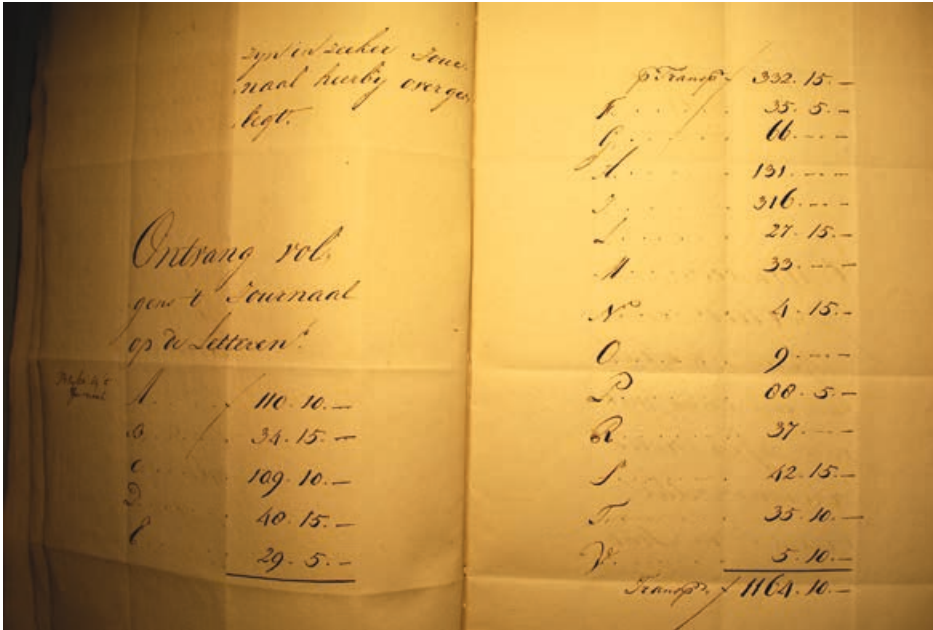 zynt in zeeker Jour-
naal hierby overge-
legt.
Ontvang vol-
gens 't Journaal
op de Letteren.
A. . . . . ƒ 110. 10. —
B. . . . . 34. 15. —
C. . . . . 109. 10. —
D. . . . . 48. 15. —
E . . . . 29. 5. —
p Transp.t ƒ 332. 15. —
F. . . . . 35. 5. —
G. . . . . 66. — —
H. . . . . 131. — —
I. . . . . 316. — —
L. . . . . 27. 15. —
M. . . . . 33. — —
N. . . . . 4. 15. —
O. . . . . 9. — —
P. . . . . 88. 5. —
R. . . . . 37. — —
S. . . . . 42. 15. —
T. . . . . 35. 10. —
V. . . . . 5. 10. —
Transp.t ƒ 1164. 10. —